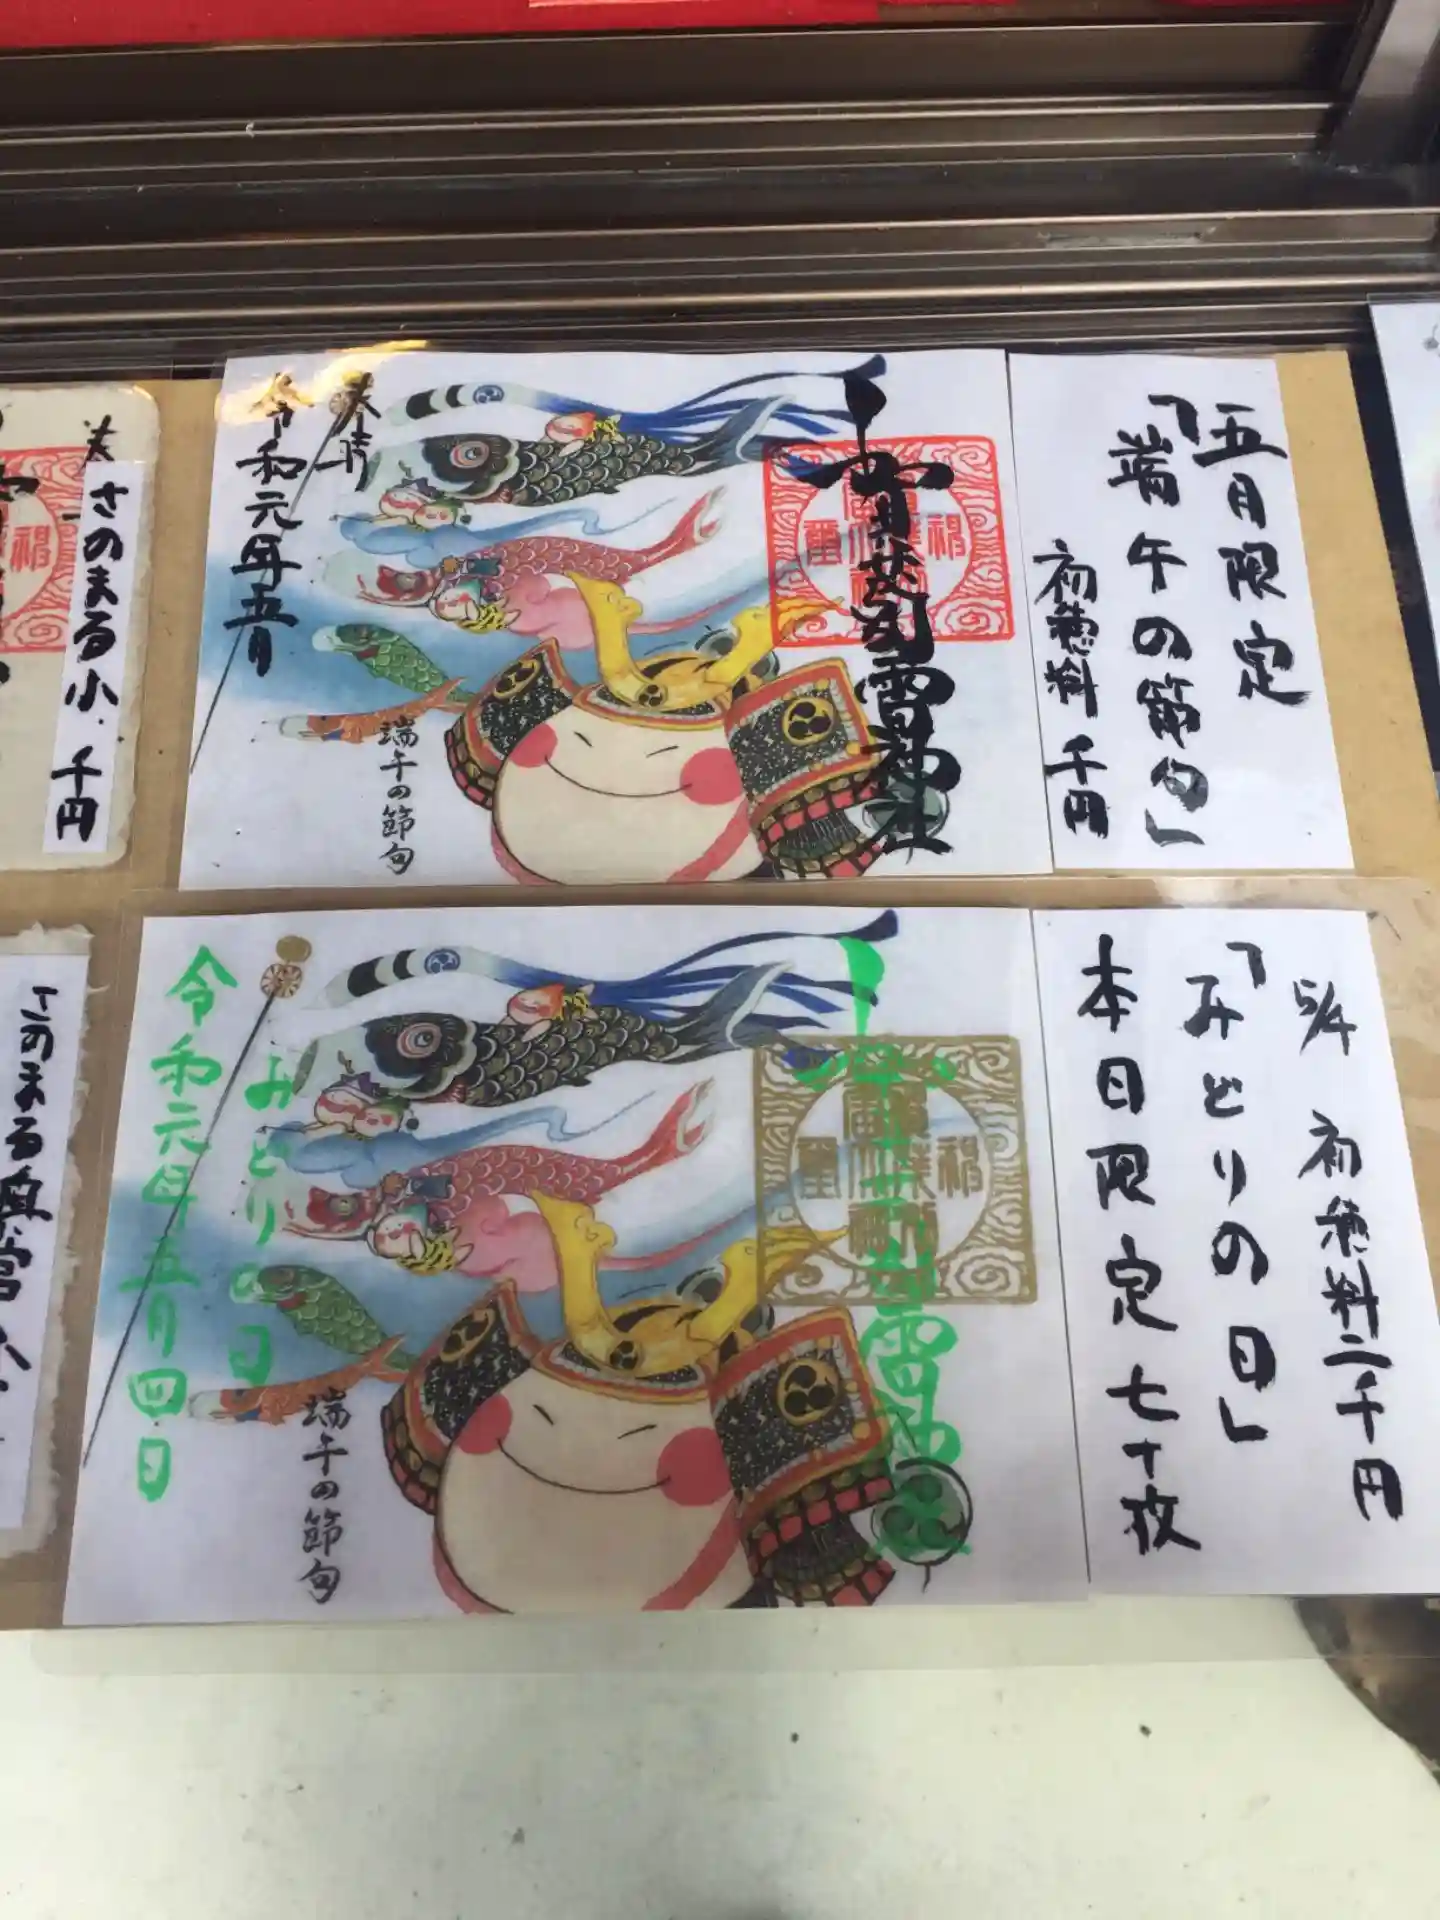 五月限定
「端午の節句」
初穂料 千円
雷神社
奉拝
令和元年五月
端午の節句
さのまる小. 千円
5/4 初穂料二千円
「みどりの日」
本日限定七十枚
みどりの日
令和元年五月四日
端午の節句